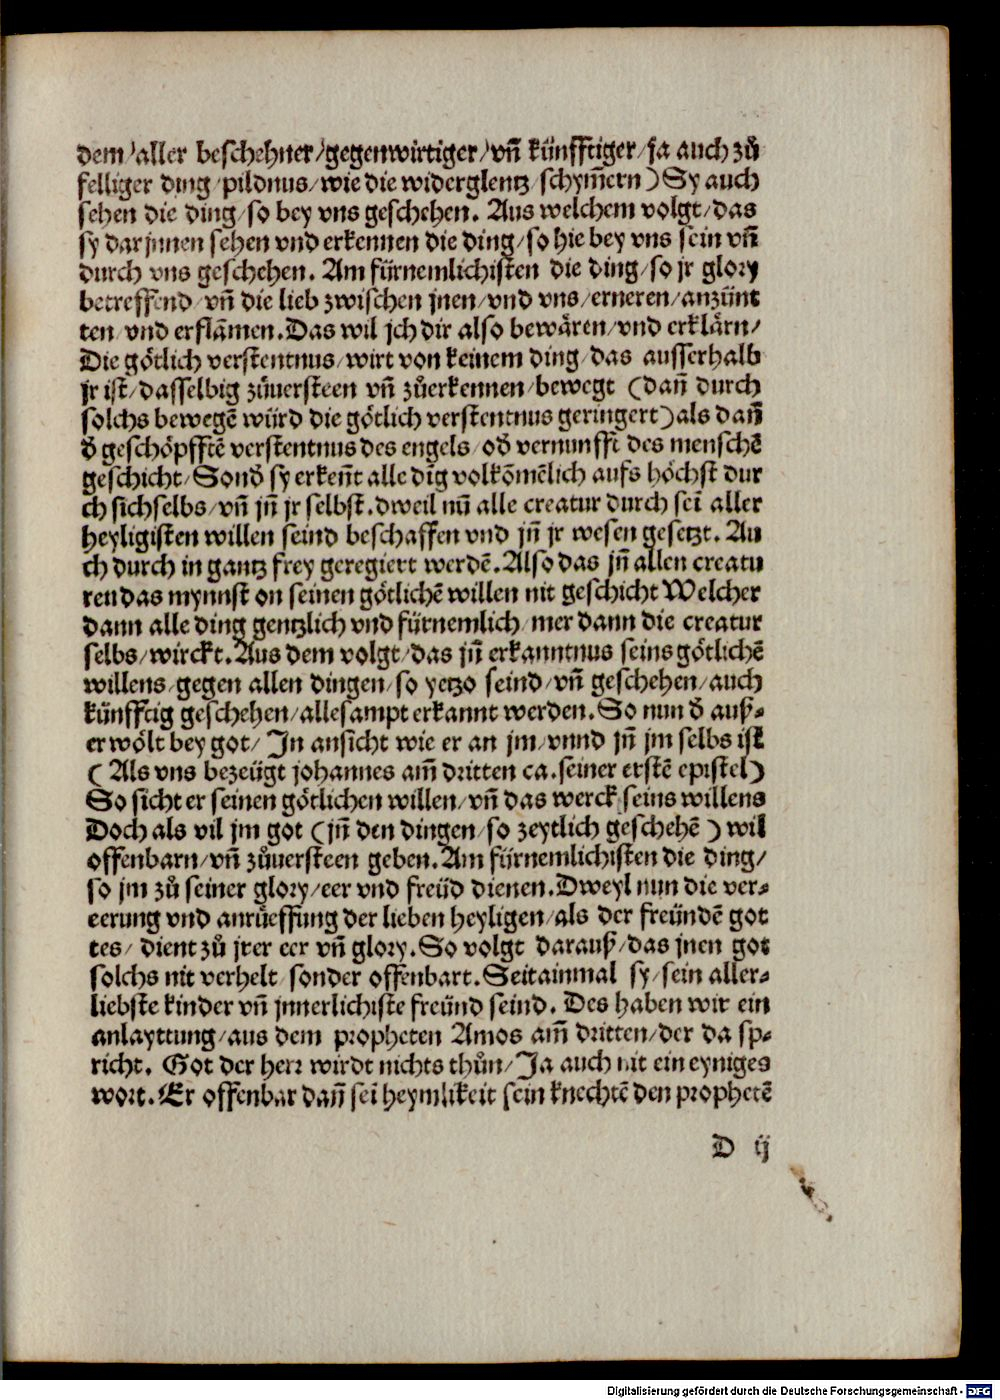 dem/aller beschehner/gegenwirtiger/vn̄ künfftiger/ja auch zů
felliger ding/pildnus/wie die widerglentz/schym̄ern) Sy auch
sehen die ding/so bey vns geschehen. Aus welchem volgt/das
sy dar jnnen sehen vnd erkennen die ding/so hie bey vns sein vn̄
durch vns geschehen. Am fürnemlichisten die ding/so jr glory
betreffend/vn̄ die lieb zwischen jnen/vnd vns/erneren/anzünt
ten/vnd erflāmen. Das wil jch dir also bewären/vnd erklärn/
Die götlich verstentnus/wirt von keinem ding/das ausserhalb
jr ist/dasselbig zůuersteen vn̄ zůerkennen/bewegt (dan̄ durch
solchs bewegē würd die götlich verstentnus geringert) als dan̄
d̄ geschöpfftē verstentnus des engels/od̄ vernunfft des menschē
geschicht/Sond̄ sy erken̄t alle dīg volkōmēlich aufs höchst dur
ch sichselbs/vn̄ jn̄ jr selbst. dweil nū alle creatur durch seī aller
heyligisten willen seind beschaffen vnd jn̄ jr wesen gesetzt. Au
ch durch in gantz frey geregiert werdē. Also das jn̄ allen creatu
ren das mynnst on seinen götlichē willen nit geschicht Welcher
dann alle ding gentzlich vnd fürnemlich/mer dann die creatur
selbs/wirckt. Aus dem volgt/das jn̄ erkanntnus seins götlichē
willens/gegen allen dingen/so yetzo seind/vn̄ geschehen/auch
künfftig geschehen/allesampt erkannt werden. So nun d̄ auß-
erwölt bey got/Jn ansicht wie er an jm/vnnd jn̄ jm selbs ist
(Als vns bezeügt johannes am̄ dritten ca. seiner erstē epistel)
So sicht er seinen götlichen willen/vn̄ das werck seins willens
Doch als vil jm got (jn̄ den dingen/so zeytlich geschehē) wil
offenbarn/vn̄ zůuersteen geben. Am fürnemlichisten die ding/
so jm zů seiner glory/eer vnd freüd dienen. Dweyl nun die ver-
eerung vnd anrüeffung der lieben heyligen/als der freündē got
tes/dient zů jrer eer vn̄ glory. So volgt darauß/das jnen got
solchs nit verhelt/sonder offenbart. Seitainmal sy/sein aller-
liebste kinder vn̄ jnnerlichiste freünd seind. Des haben wir ein
anlayttung/aus dem propheten Amos am̄ dritten/der da sp-
richt. Got der herr wirdt nichts thůn/Ja auch nit ein eyniges
wort. Er offenbar dan̄ seī heymlikeit sein knechtē den prophetē
D ij
Digitalisierung gefördert durch die Deutsche Forschungsgemeinschaft - DFG